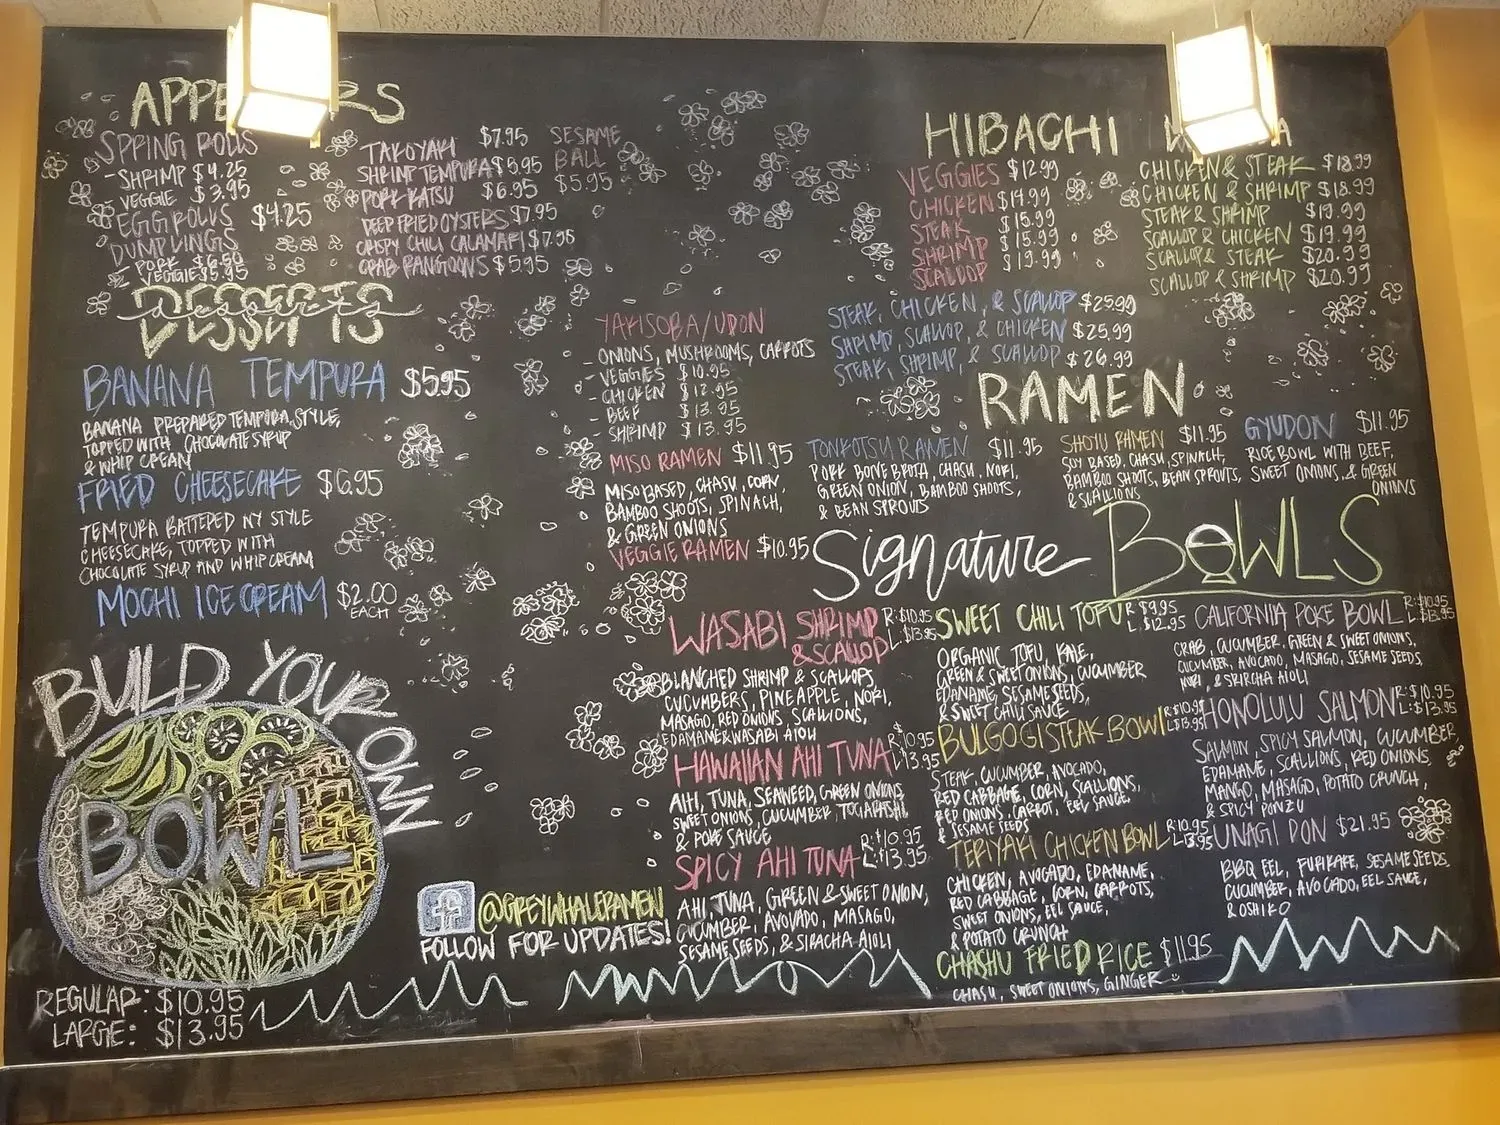 APPE RS
SPRING ROLLS
- SHRIMP $4.25
VEGGIE $3.95
EGG ROLLS $4.25
DUMPLINGS
- PORK $6.50
VEGGIE $5.95
TAKOYAKI $7.95
SHRIMP TEMPURA $5.95
PORK KATSU $6.95
DEEP FRIED OYSTERS $7.95
CRISPY CHILI CALAMARI $7.95
CRAB RANGOONS $5.95
SESAME
BALL
$5.95
DESSERTS
BANANA TEMPURA $5.95
BANANA PREPARED TEMPURA STYLE,
TOPPED WITH CHOCOLATE SYRUP
& WHIP CREAM
FRIED CHEESECAKE $6.95
TEMPURA BATTERED NY STYLE
CHEESECAKE, TOPPED WITH
CHOCOLATE SYRUP AND WHIP CREAM
MOCHI ICE CREAM $2.00
EACH
BUILD YOUR OWN
BOWL
REGULAR: $10.95
LARGE: $13.95
@GREYWHALERAMEN
FOLLOW FOR UPDATES!
YAKISOBA/UDON
- ONIONS, MUSHROOMS, CARROTS
- VEGGIES $10.95
- CHICKEN $12.95
- BEEF $13.95
- SHRIMP $13.95
MISO RAMEN $11.95
MISO BASED, CHASU, CORN,
BAMBOO SHOOTS, SPINACH,
& GREEN ONIONS
VEGGIE RAMEN $10.95
HIBACHI
VEGGIES $12.99
CHICKEN $14.99
STEAK $15.99
SHRIMP $15.99
SCALLOP $19.99
CHICKEN & STEAK $18.99
CHICKEN & SHRIMP $18.99
STEAK & SHRIMP $19.99
SCALLOP & CHICKEN $19.99
SCALLOP & STEAK $20.99
SCALLOP & SHRIMP $20.99
STEAK, CHICKEN, & SCALLOP $25.99
SHRIMP, SCALLOP, & CHICKEN $25.99
STEAK, SHRIMP, & SCALLOP $26.99
RAMEN
TONKOTSU RAMEN $11.95
PORK BONE BROTH, CHASU, NORI,
GREEN ONION, BAMBOO SHOOTS,
& BEAN SPROUTS
SHOYU RAMEN $11.95
SOY BASED, CHASU, SPINACH,
BAMBOO SHOOTS, BEAN SPROUTS,
& SCALLIONS
GYUDON $11.95
RICE BOWL WITH BEEF,
SWEET ONIONS, & GREEN
ONIONS
Signature BOWLS
WASABI SHRIMP R: $10.95
& SCALLOP L: $13.95
BLANCHED SHRIMP & SCALLOPS
CUCUMBERS, PINEAPPLE, NORI,
MASAGO, RED ONIONS, SCALLIONS,
EDAMAME & WASABI AIOLI
HAWAIIAN AHI TUNA R: $10.95
L: $13.95
AHI, TUNA, SEAWEED, GREEN ONIONS
SWEET ONIONS, CUCUMBER, TOGARASHI,
& POKE SAUCE
SPICY AHI TUNA R: $10.95
L: $13.95
AHI, TUNA, GREEN & SWEET ONION,
CUCUMBER, AVOCADO, MASAGO,
SESAME SEEDS, & SIRACHA AIOLI
SWEET CHILI TOFU R $9.95
L: $12.95
ORGANIC TOFU, KALE,
GREEN & SWEET ONIONS, CUCUMBER
EDAMAME, SESAME SEEDS,
& SWEET CHILI SAUCE
BULGOGI STEAK BOWL R: $10.95
L: $13.95
STEAK, CUCUMBER, AVOCADO,
RED CABBAGE, CORN, SCALLIONS,
RED ONIONS, CARROT, EEL SAUCE,
& SESAME SEEDS
TERIYAKI CHICKEN BOWL R: $10.95
L: $13.95
CHICKEN, AVOCADO, EDAMAME,
RED CABBAGE, CORN, CARROTS,
SWEET ONIONS, EEL SAUCE,
& POTATO CRUNCH
CHASHU FRIED RICE $11.95
CHASU, SWEET ONIONS, GINGER
CALIFORNIA POKE BOWL R: $10.95
L: $13.95
CRAB, CUCUMBER, GREEN & SWEET ONIONS,
CUCUMBER, AVOCADO, MASAGO, SESAME SEEDS,
NORI, & SRIRCHA AIOLI
HONOLULU SALMON R: $10.95
L: $13.95
SALMON, SPICY SALMON, CUCUMBER
EDAMAME, SCALLIONS, RED ONIONS,
MANGO, MASAGO, POTATO CRUNCH,
& SPICY PONZU
UNAGI DON $21.95
BBQ EEL, FURIKAKE, SESAME SEEDS,
CUCUMBER, AVOCADO, EEL SAUCE,
& OSHIKO